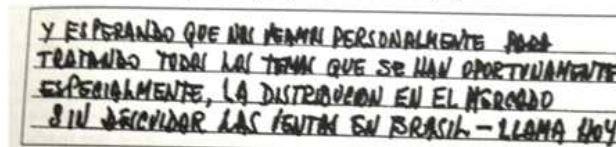 Y ESPERANDO QUE NOS VEAMOS PERSONALMENTE PARA
TRATANDO TODOS LOS TEMAS QUE SE HAN OPORTUNAMENTE
ESPECIALMENTE, LA DISTRIBUCION EN EL MERCADO
SIN DESCUIDAR LAS VENTAS EN BRASIL - LLAMA HOY